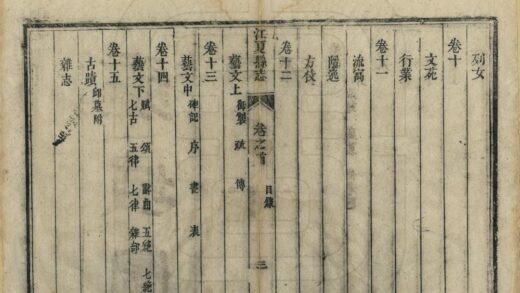 列女
卷十
文苑
行業
卷十一
流寓
隱逸
方伎
卷十二
江夏縣志 卷之首 目錄 三
藝文上 御製 疏 傳
卷十三
藝文中 碑記 序 書 表
卷十四
藝文下 賦 頌 辭曲 五絕 七絕
七古 五律 七律 雜
卷十五
古蹟 邱墓附
雜志